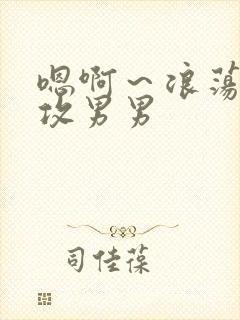 嗯啊～浪荡
攻男男
司佳葆